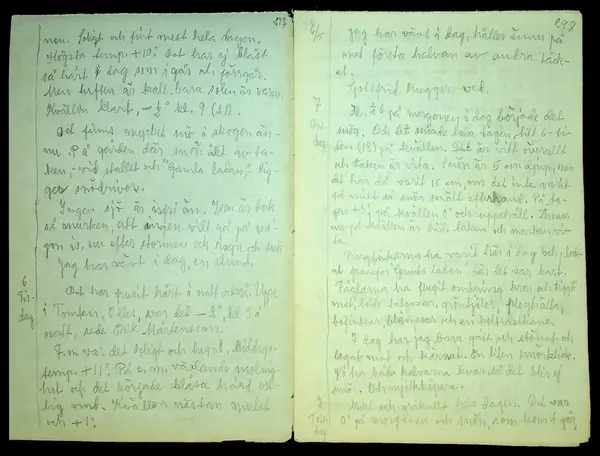 297
nen. Soligt och fint mest hela dagen.
Högsta temp. +10°. Det har ej blåst
så hårt i dag som i går och förrgår.
Men luften är kall, bara solen är varm.
Kvällen klart, -½° kl. 9 (21).
Det finns mycket snö i skogen än-
nu. På gården där snön åkt av ta-
ken, vid stallet och "Gamla ladan", lig-
ger snödrivor.
Ingen sjö är isfri än. Isen är dock
så murken, att ingen vill gå på nå-
gon is, nu efter stormen och
Jag har vävt i dag, en stund.
6
Tis-
dag
Det har frusit hårt i natt också. Uppe
i Tomtan, Olles, var det -8°, kl 3 i
natt, sade Erik Martensson.
F.m var det soligt och lugnt. Middags-
temp. +11°. På e.m växlande molnig-
het och det började blåsa hård ost-
lig vind. Kvällen nästan mulet
och +1°.
298
6/5
Jag har vävt i dag, håller ännu på
med första halvan av andra täck-
et.
Gottfrid hugger ved.
7
Ons-
dag
Kl. ½ 6 på morgonen i dag började det
snöa. Och det snöade hela dagen, till 6-ti-
den (18) på kvällen. Det är vitt överallt
och taken är vita. Snön är 5 cm djup, men
det har då varit 15 cm, om det inte varit
så milt så snön smält efterhand. På da-
gen +3°, på kvällen 0° och uppehåll. Ännu
nu på kvällen är både taken och marken vi-
ta.
Bergfinkarna ha varit här i dag och
at framför Gamla ladan, där det var bart.
Fåglarna ha flugit omkring kron och tiggt
mat, både talgoxar, grönfinkar,
bofinkar, blåmesar och en koltrasthane.
I dag har jag bara gått och stökat och
lagat mat och kärnat. En liten smörklick.
Vi ha båda kalvarna kvar då det blir ej
mjölk
8
Tors-
dag
Mulet och gråkallt hela dagen. Det var
0° på morgonen och snön, som kom i går,